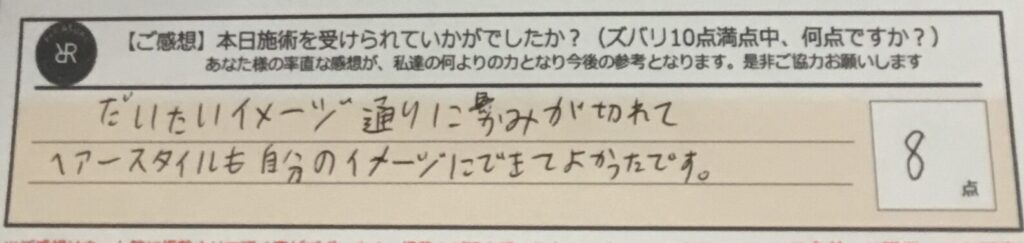 【ご感想】本日施術を受けられていかがでしたか？（ズバリ10点満点中、何点ですか？）
あなた様の率直な感想が、私達の何よりの力となり今後の参考となります。是非ご協力お願いします
だいたいイメージ通りに
かみが切れて
ヘアースタイルも自分のイメージにできてよかったです。
8
点